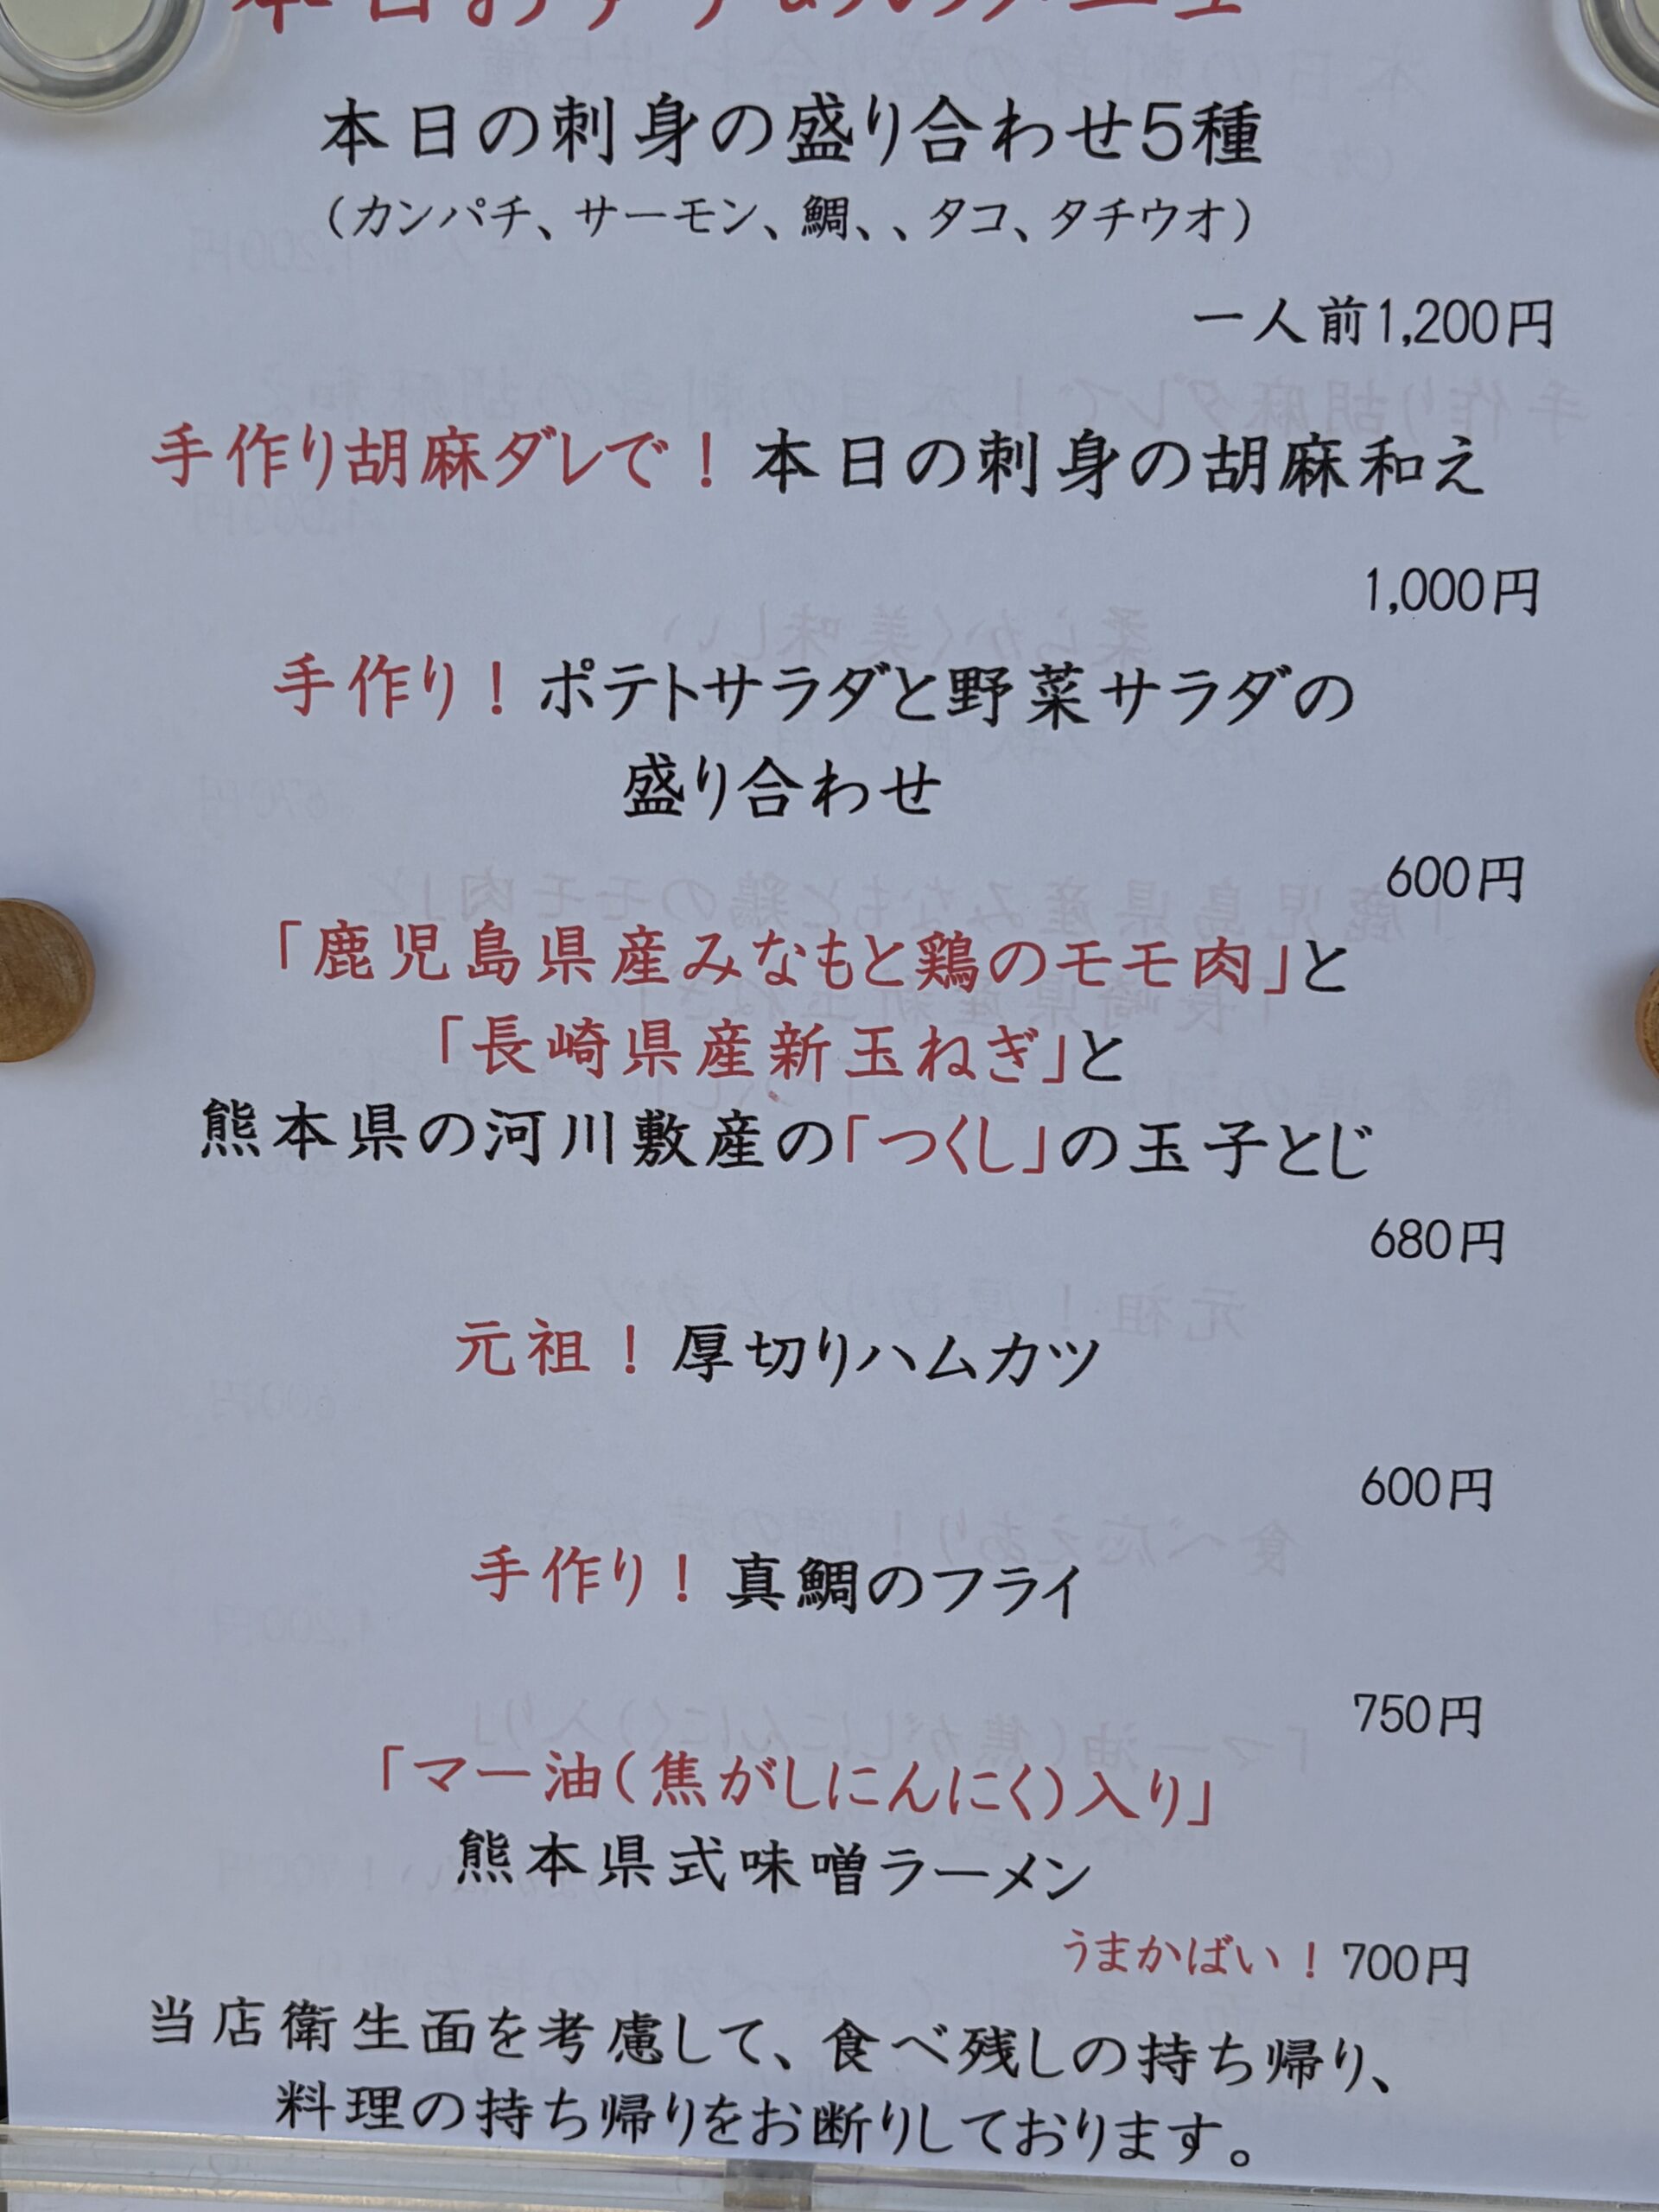 本日の刺身の盛り合わせ5種
（カンパチ、サーモン、鯛、、タコ、タチウオ）
一人前1,200円
手作り胡麻ダレで！本日の刺身の胡麻和え
1,000円
手作り！ポテトサラダと野菜サラダの
盛り合わせ
600円
「鹿児島県産みなもと鶏のモモ肉」と
「長崎県産新玉ねぎ」と
熊本県の河川敷産の「つくし」の玉子とじ
680円
元祖！厚切りハムカツ
600円
手作り！真鯛のフライ
750円
「マー油（焦がしにんにく）入り」
熊本県式味噌ラーメン
うまかばい！700円
当店衛生面を考慮して、食べ残しの持ち帰り、
料理の持ち帰りをお断りしております。